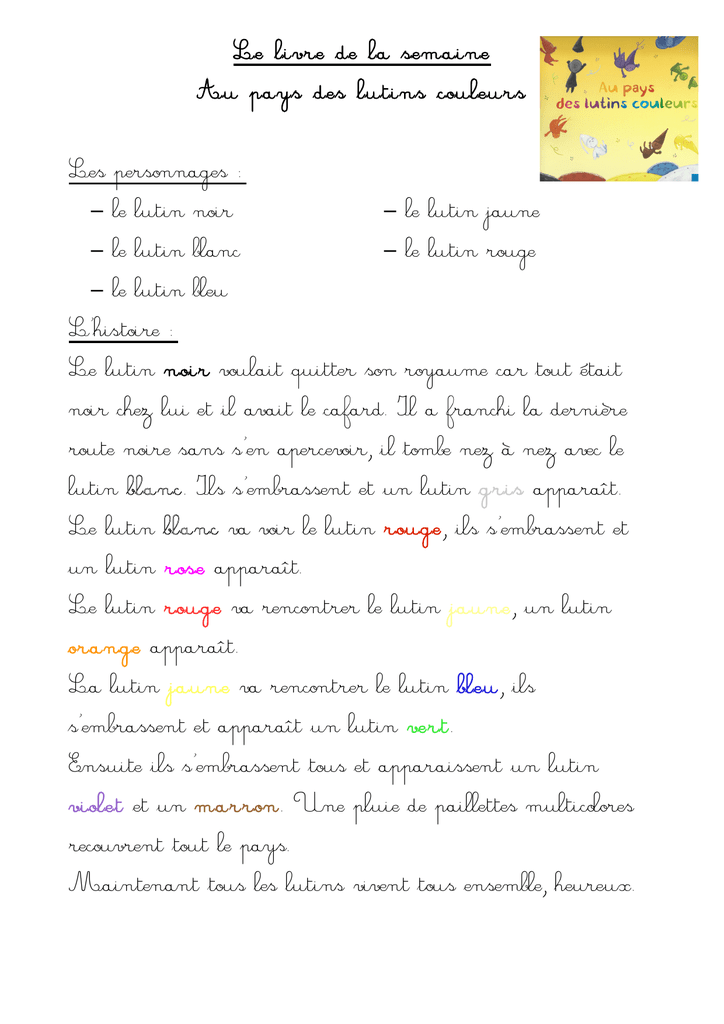 Le livre de la semaine
Au pays des lutins couleurs
Au pays
des lutins couleurs
Les personnages :
– le lutin noir – le lutin jaune
– le lutin blanc – le lutin rouge
– le lutin bleu
L'histoire :
Le lutin noir voulait quitter son royaume car tout était
noir chez lui et il avait le cafard. Il a franchi la dernière
route noire sans s'en apercevoir, il tombe nez à nez avec le
lutin blanc. Ils s'embrassent et un lutin gris apparaît.
Le lutin blanc va voir le lutin rouge, ils s'embrassent et
un lutin rose apparaît.
Le lutin rouge va rencontrer le lutin jaune, un lutin
orange apparaît.
La lutin jaune va rencontrer le lutin bleu, ils
s'embrassent et apparaît un lutin vert.
Ensuite ils s'embrassent tous et apparaissent un lutin
violet et un marron. Une pluie de paillettes multicolores
recouvrent tout le pays.
Maintenant tous les lutins vivent tous ensemble, heureux.